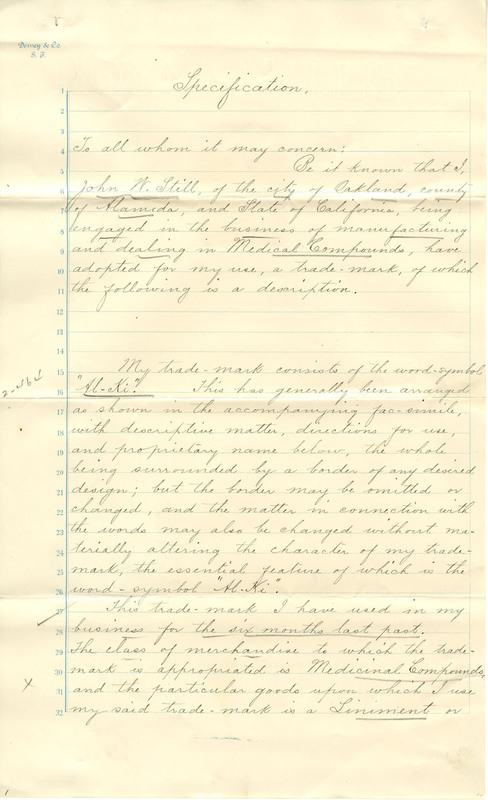 Dewey & Co
S. F.
Specification.
To all whom it may concern:
Be it known that I,
John W. Still, of the city of Oakland, county
of Alameda, and State of California, being
engaged in the business of manufacturing
and dealing in Medical Compounds, have
adopted for my use, a trade-mark, of which
the following is a description.
My trade-mark consists of the word-symbol
"Al-Ki". This has generally been arranged
as shown in the accompanying fac-simile,
with descriptive matter, directions for use,
and proprietary name below, the whole
being surrounded by a border of any desired
design; but the border may be omitted or
changed, and the matter in connection with
the words may also be changed without ma-
terially altering the character of my trade-
mark, the essential feature of which is the
word-symbol "Al-Ki".
This trade-mark I have used in my
business for the six months last past.
The class of merchandise to which the trade-
mark is appropriated is Medicinal Compounds,
and the particular goods upon which I use
my said trade-mark is a Liniment or